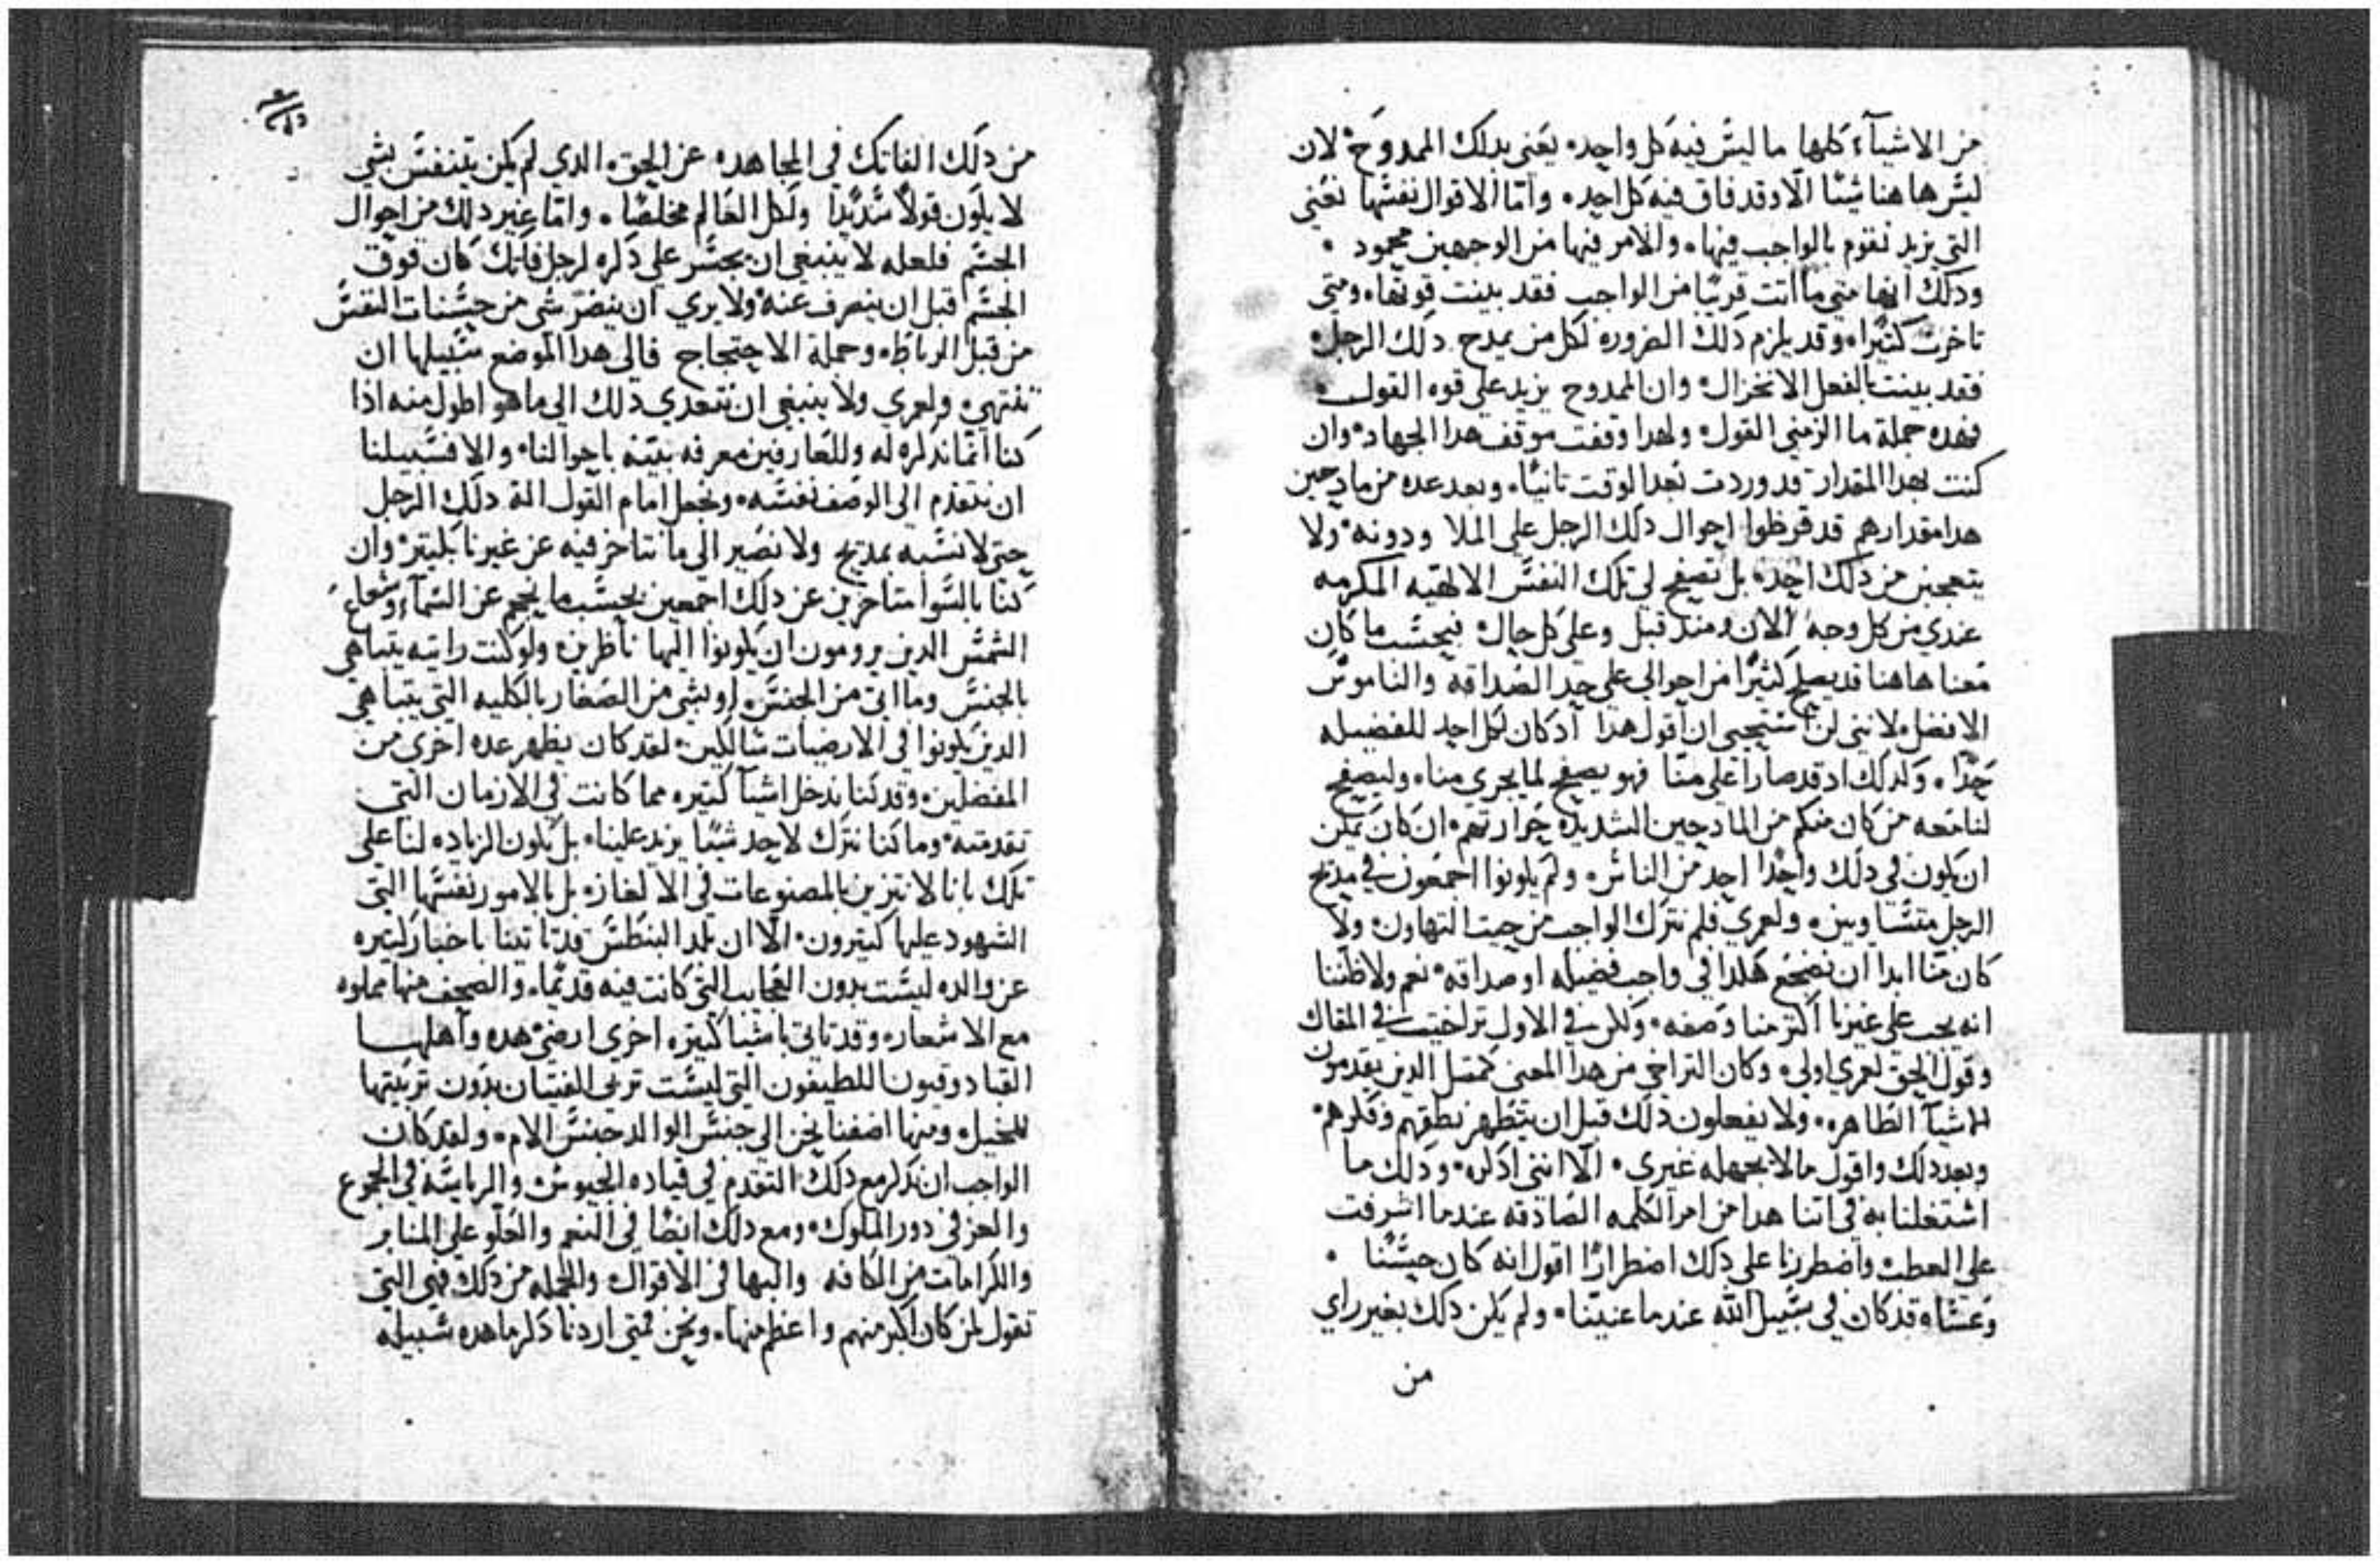 من الاشيآء كلها ما ليس فيه كل واحد، يعني بدلك الممدوح، لان
ليس هاهنا شيئا الا وقد فاق فيه كل احد، واما الاقوال نفسها نعني
التي يريد نقوم بالواجب فيها، والامر فيها من الوجهين محمود،
ودلك انها متي ما اتت قريبا من الواجب فقد بينت قوتها، ومتي
تاخرت كثيرا، وقد يلزم دلك الضروره لكل من يمدح دلك الرجل،
فقد بينت بالفعل الانخزال، وان الممدوح يزيد علي قوه القول،
فهده جملة ما الزمني القول، ولهدا وقفت موقف هدا الجهاد، وان
كنت بهدا المقدار قد وردت بعد الوقت تانيا، وبعد عده من مادحين
هدا مقدارهم قد قرظوا احوال دلك الرجل علي الملا ودونه، ولا
يتعجبن من دلك احد، بل تصفح لي تلك النفس الالاهيه المكرمه
عندي من كل وجه الان ومند قبل وعلي كل حال، فبحسب ما كان
معنا هاهنا قد يصلح كثيرا من احوالي علي حد الصداقه والناموس
الافضل، لانني لن استحيي ان اقول هدا اد كان لكل احد للفضيله
حدا، ولدلك اد قد صار اعلي منا فهو يصفح لما يجري منا، وليصفح
لنا معه من كان منكم من المادحين الشديده حرارتهم، ان كان يمكن
ان يكون في دلك واحدا احد من الناس، ولم يكونوا اجمعون في مديح
الرجل متساويين، ولعمري فلم نترك الواجب من حيت التهاون، ولا
كان منا ابدا ان نضجع هكدا في واجب فضيله او صداقه، نعم ولا ظننا
انه يجب علي غيرنا اكتر منا وصفه، ولكن في الاول تراخيت في المقال
وقول الحق لعمري اولي، وكان التراخي من هدا المعني كمتل الدين يقدمون
للاشيآ الطاهره، ولا يفعلون دلك قبل ان يتطهر نطقهم وفكرهم،
وبعد دلك واقول ما لا يجهله غيري، الا انني ادكره، ودلك ما
اشتغلنا به في اتنا هدا من امر الكلمه الصادقه عندما اشرفت
علي العطب واضطررنا علي دلك اضطرارا اقول انه كان حسنا،
وعساه قد كان في سبيل الله عندما عنيتنا، ولم يكن دلك بغير راي
من
من دلك الفاتك في المجاهده عن الحق، الدي لم يكن يتنفس بشي
لا يكون قولا سديدا ولكل العالم مخلصا، واما غير دلك من احوال
الجسم فلعله لا ينبغي ان يجسر علي دكره لرجل فاتك كان فوق
الجسم قبل ان ينصرف عنه، ولا يري ان ينضر شي من حسنات النفس
من قبل الرباط، وحملة الاحتجاج فالي هدا الموضع سبيلها ان
تنتهي، ولعمري ولا ينبغي ان نتعدي دلك الي ما هو اطول منه ادا
كنا انما ندكره له وللعارفين معرفه بينه باحوالنا، والا فسبيلنا
ان نتقدم الي الوصف نفسه، ونجعل امام القول الة دلك الرجل
حتي لا نشبه بمديح ولا نصير الي ما نتاخر فيه عن غيرنا بكتير، وان
كنا بالسوا متاخرين عن دلك اجمعين بحسب ما يحجم عن السمآء وشعاع
الشمس الدين يرومون ان يكونوا اليها ناظرين، ولو كنت رايته يتباهي
بالجنس وما اتي من الجنس، او بشي من الصغار بالكليه التي يتباهي
الدين يكونوا في الارضيات شاكلين، لقد كان يظهر عده اخري من
المفضلين، وقد كنا ندخل اشيآ كتيره مما كانت في الازمان التي
تقدمته، وما كنا نترك لاحد شيئا يزيد علينا، بل يكون الزياده لنا علي
تلك بانا لا نتزين بالمصنوعات في الالغاز، بل بالامور نفسها التي
الشهود عليها كتيرون، الا ان بلد البنطس قد تاتينا باخبار كتيره
عن والده ليست بدون العجايب التي كانت فيه قديما، والصحف منها مملوه
مع الاشعار، وقد تاتي باشيا كتيره اخري ارضي هده واهلها
القبادوقيون اللطيفون التي ليست تربي الفتيان بدون تربيتها
للخيل، ومنها اضفنا نحن الي جنس الوالد جنس الام، ولقد كان
الواجب ان ندكر مع دلك التقدم في قياده الجيوش والرياسه في الجموع
والعز في دور الملوك، ومع دلك ايضا في النعم والعلو علي المنابر
والكرامات من الكافه والبها في الاقوال والجمله من دلك فهي التي
تقول لمن كان اكبر منهم واعظم منها، ونحن فمتي اردنا دكر ما هده سبيله